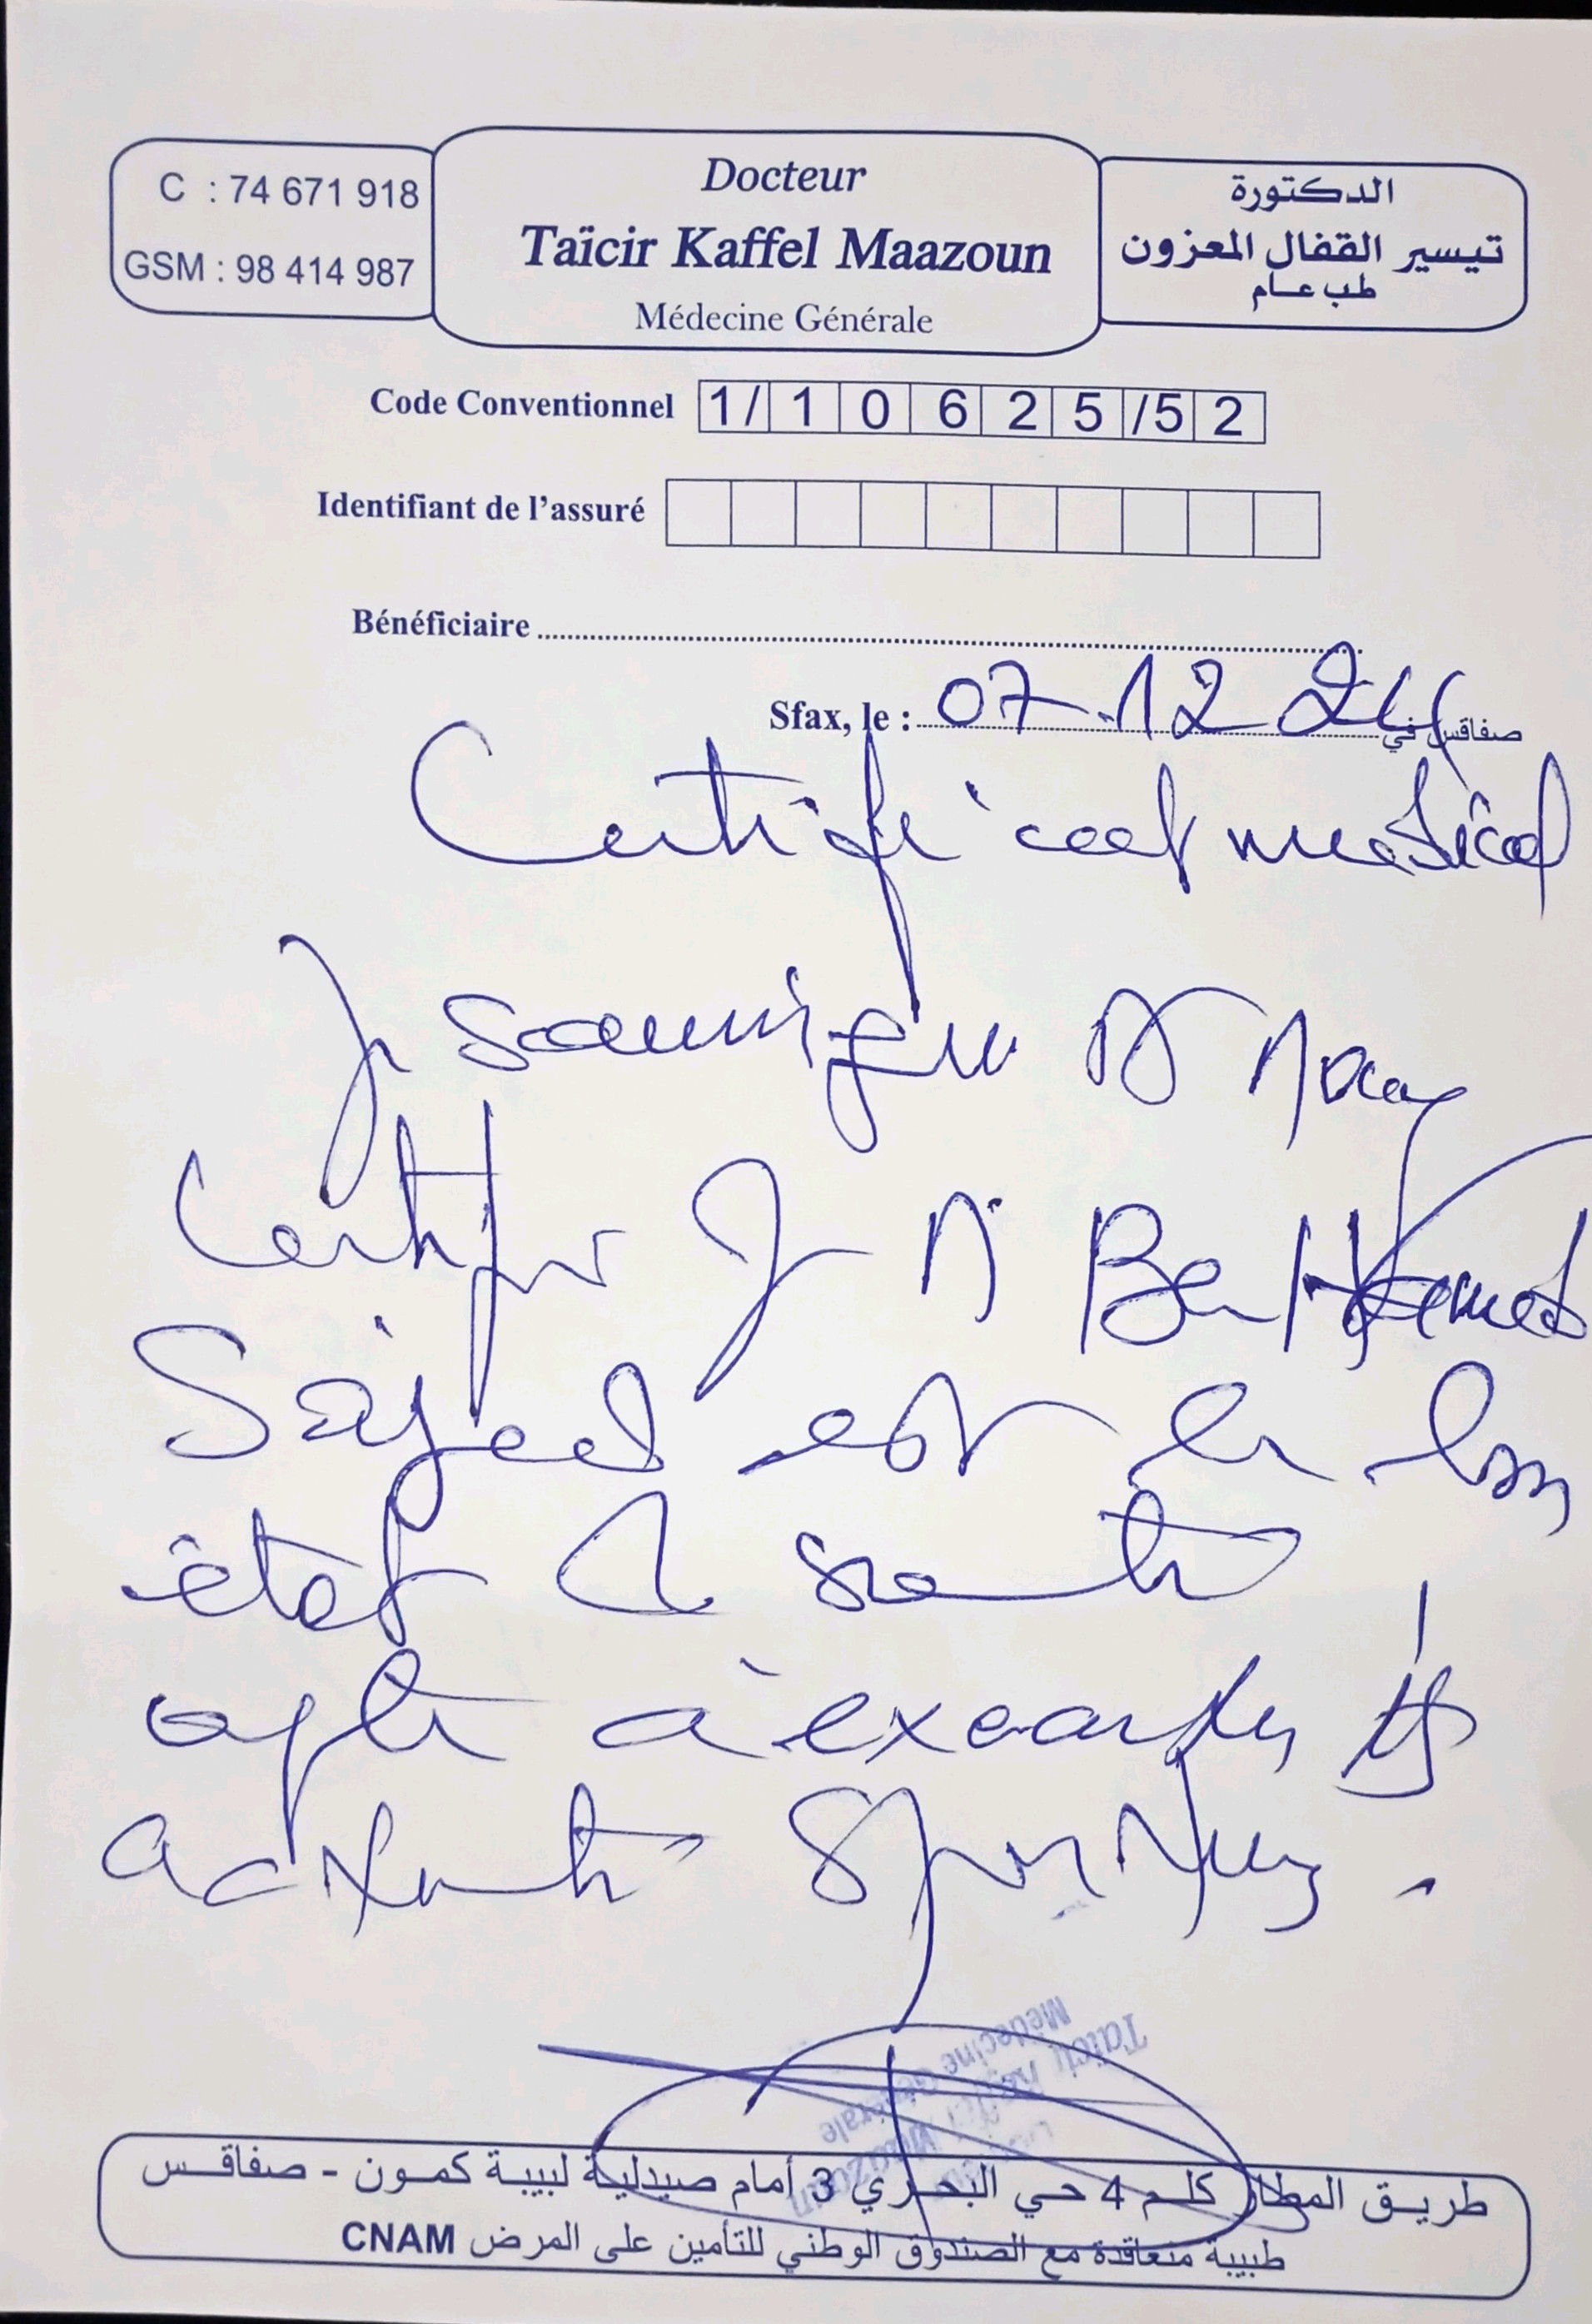 C : 74 671 918
GSM : 98 414 987
Docteur
Taïcir Kaffel Maazoun
Médecine Générale
الدكتورة
تيسير القفال المعزون
طب عام
Code Conventionnel 1/ 1 0 6 2 5 /5 2
Identifiant de l'assuré
Bénéficiaire
Sfax, le : 07.12 24 صفاقس في
Certificat médical
Je soussigné Dr
Certifie que M Ben Hamed
Sajed est en bon
état de santé
apte à exercer ttes
activités sportives.
Taïcir Kaffel Maazoun
Médecine Générale
طريق المطار كلم 4 حي البحري 3 أمام صيدلية لبيبة كمون - صفاقس
طبيبة متعاقدة مع الصندوق الوطني للتأمين على المرض CNAM